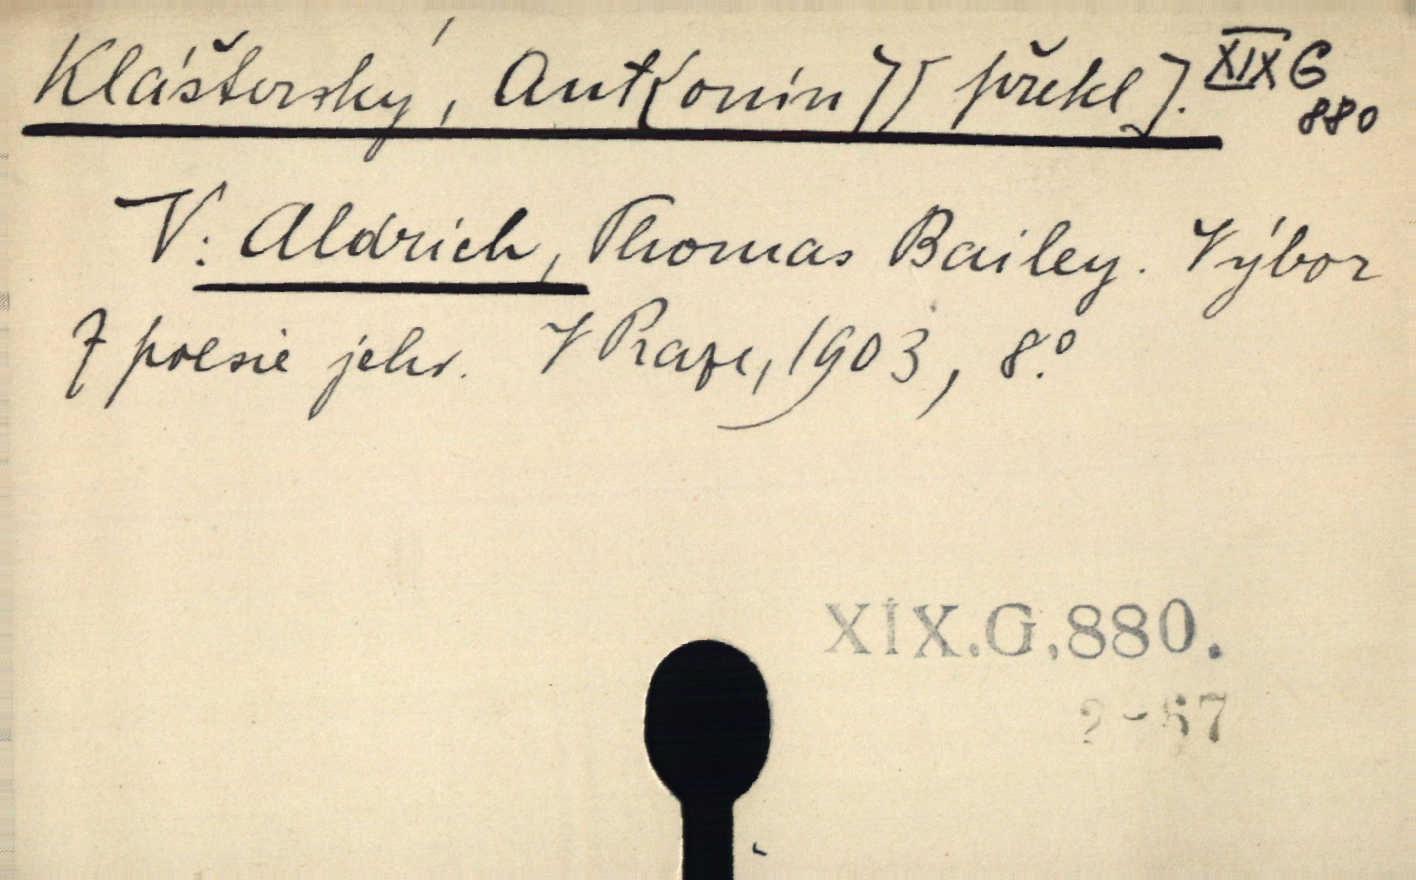 Klášterský, Ant[onín][překl]. XIX G
880
V: Aldrich, Thomas Bailey. Výbor
z poesie jeho. V Praze, 1903, 8.°
XIX.G.880.